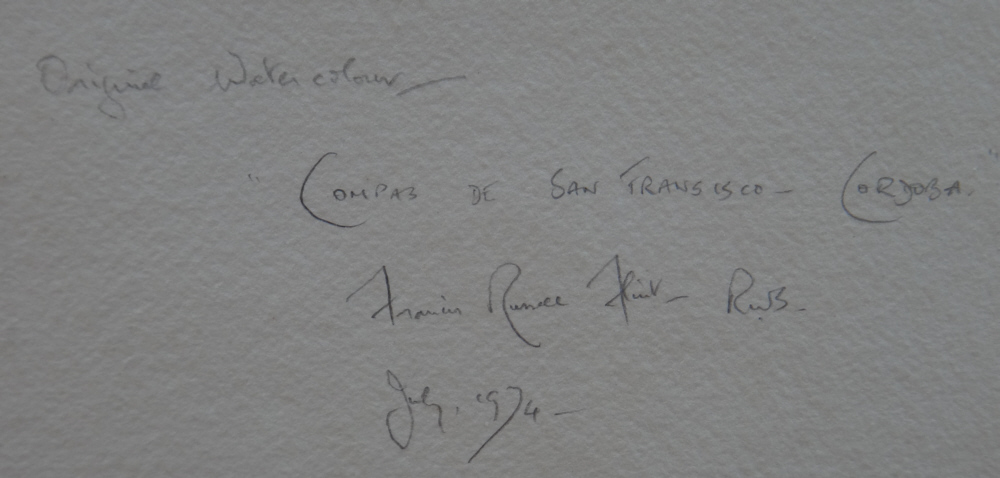 Original Watercolour —
" COMPAS DE SAN FRANSISCO — CORDOBA. "
Francis Russell Flint — R.W.S. —
July. 1974 —